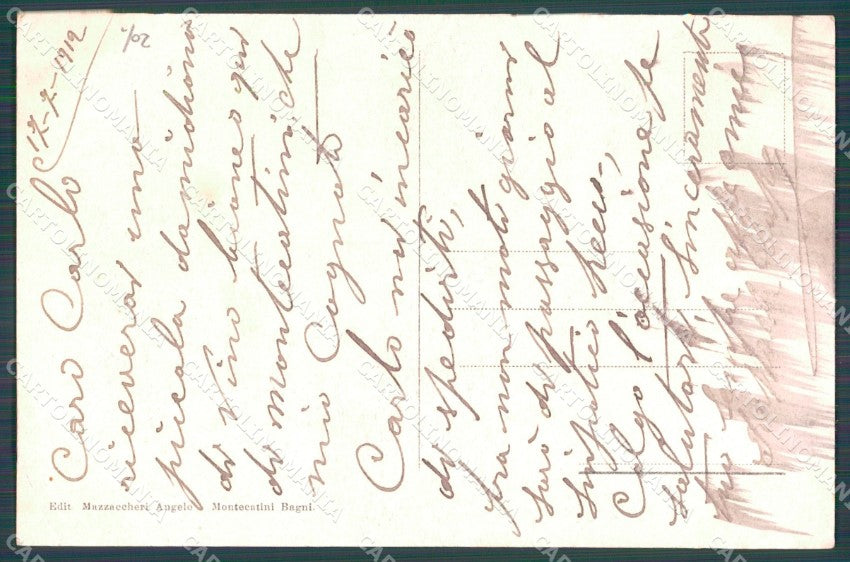 17-7-1912
Caro Carlo
riceverai una
picala damichiana
di vino bianco qui
di montecatini che
mio Cognato
Carlo mi incaricò
di spedirti,
fra non molto giorni
sarò di passaggio al
simpatico
Colgo l'occasione te
salutarti sinceramente
tuo
Edit. Mazzaccheri Angelo - Montecatini Bagni.
CARTOLINOMANIA